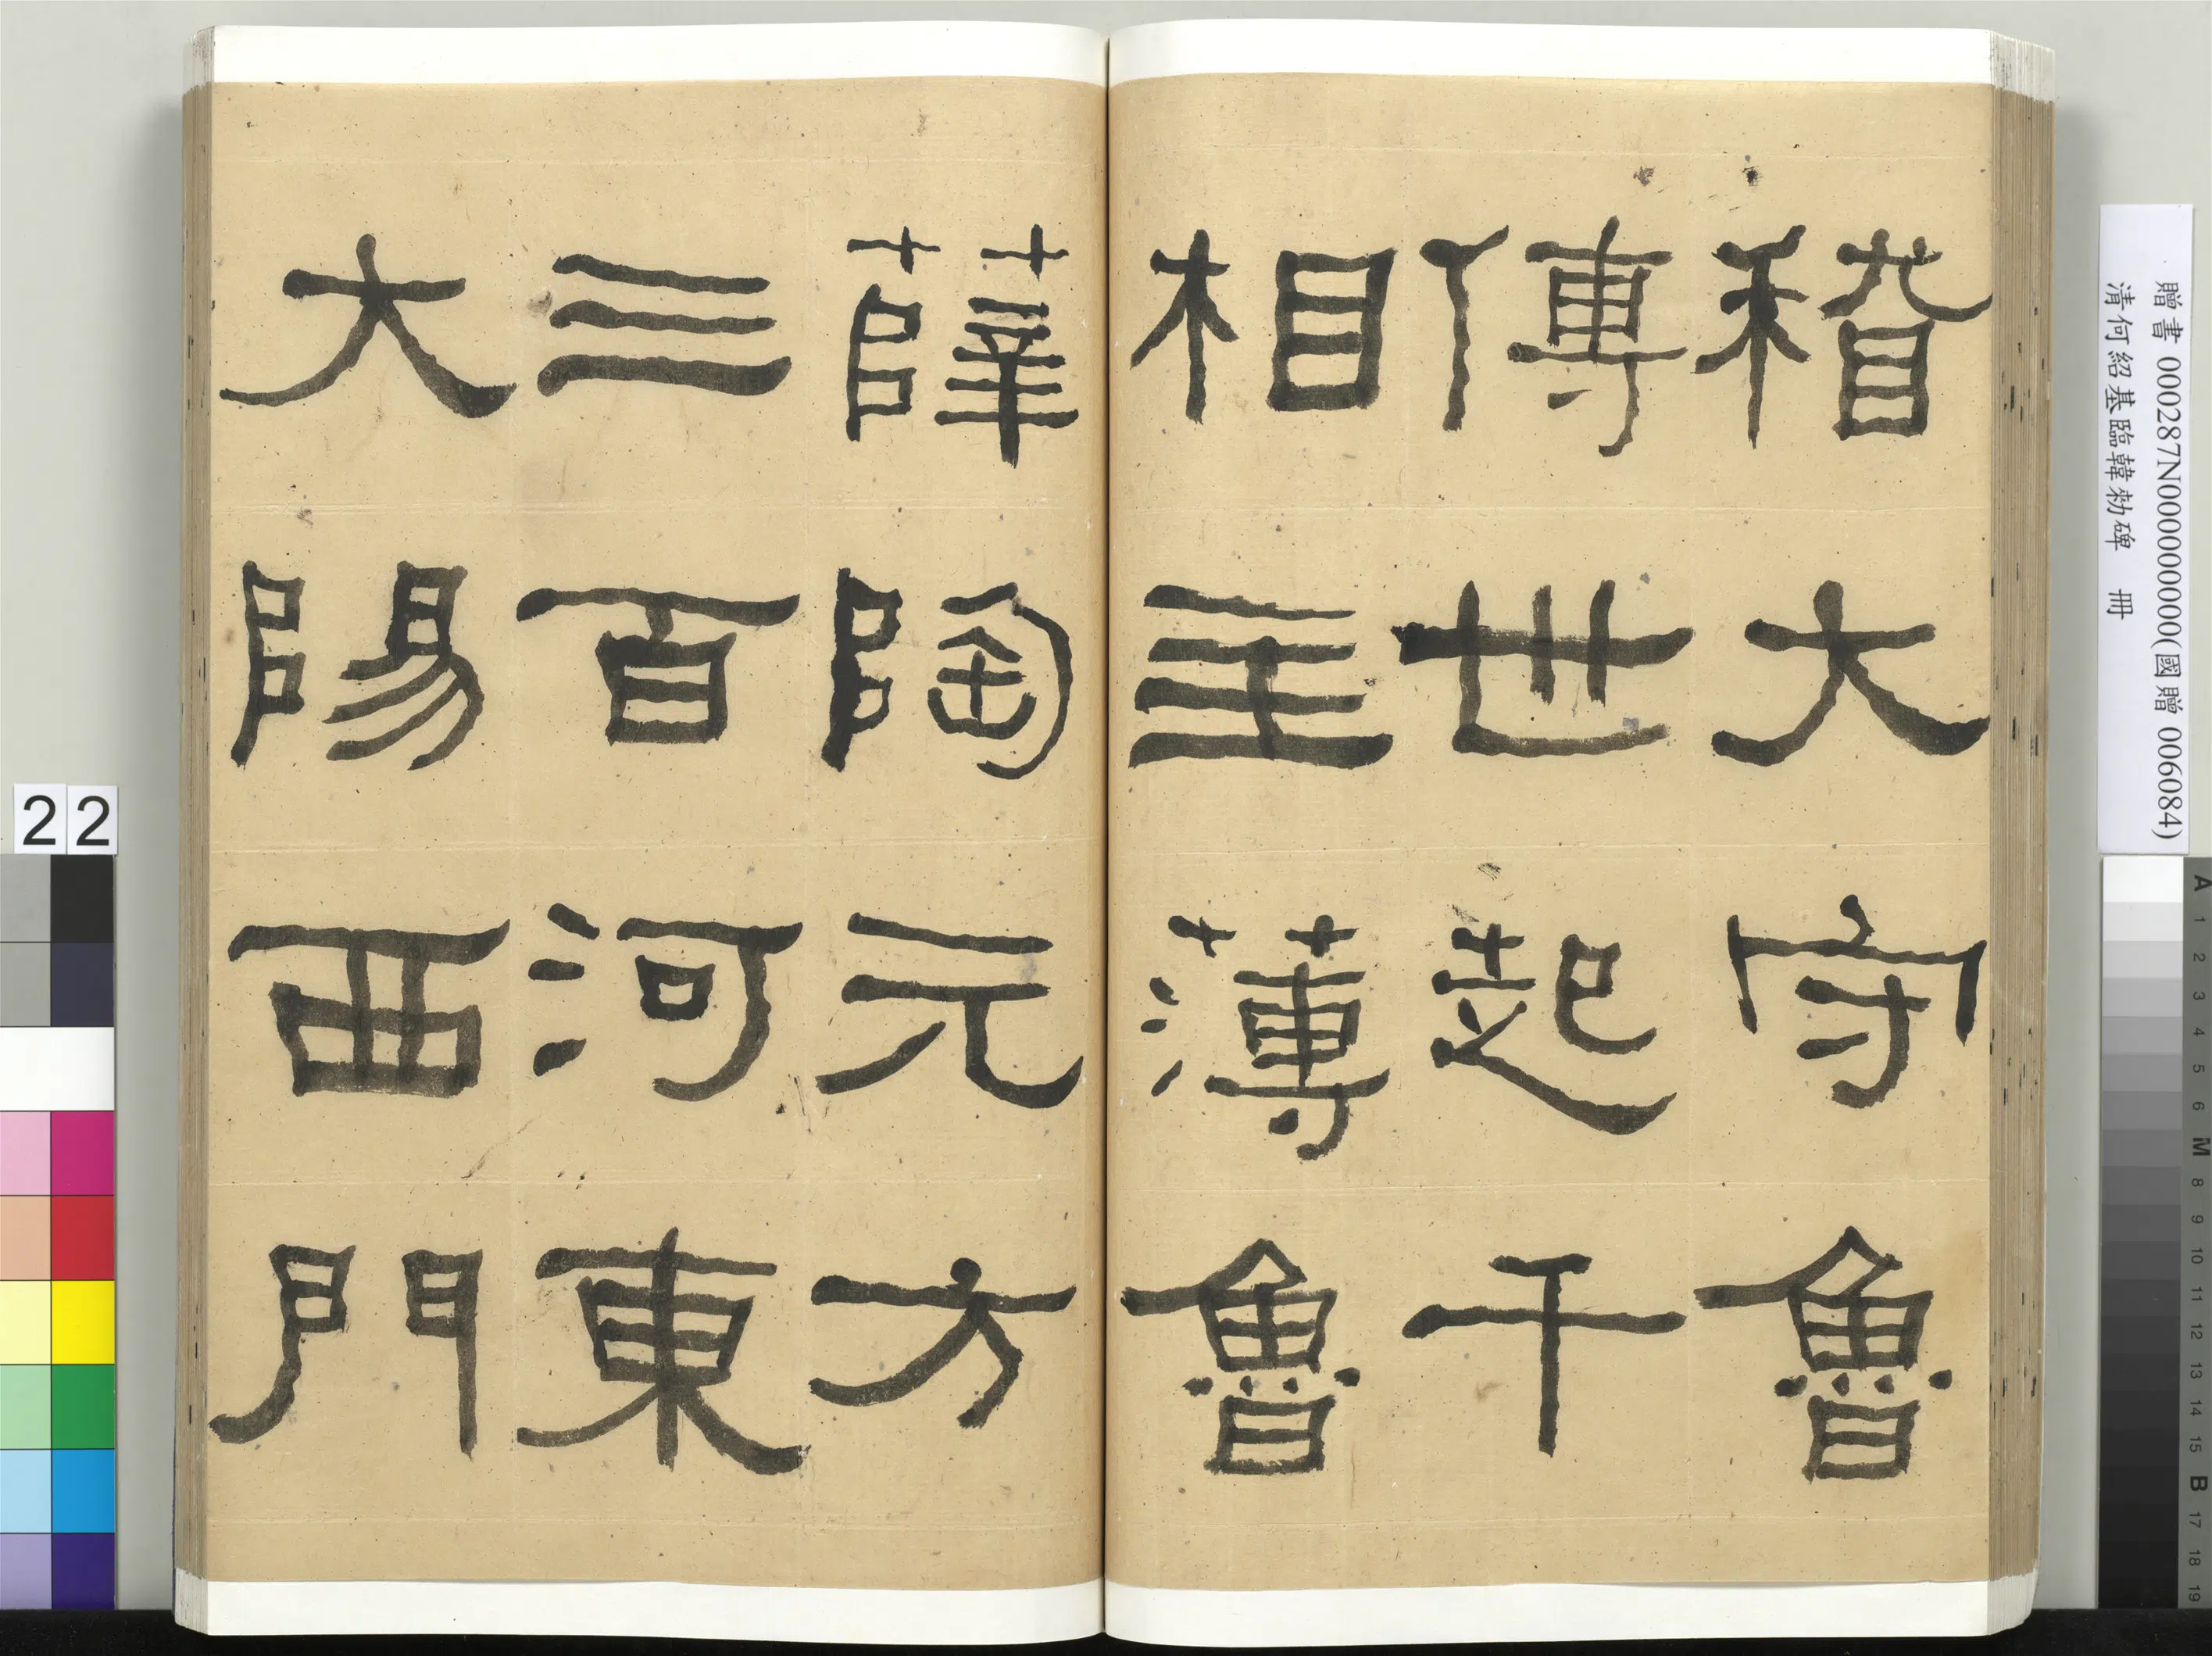 稽大守魯
傳世起千
相主薄魯
薛陶元方
三百河東
大陽西門
贈書 000287N000000000(國贈 006084)
清何紹基臨韓勑碑 冊
22
A 1 2 3 4 5 6 M 8 9 10 11 12 13 14 15 B 17 18 19